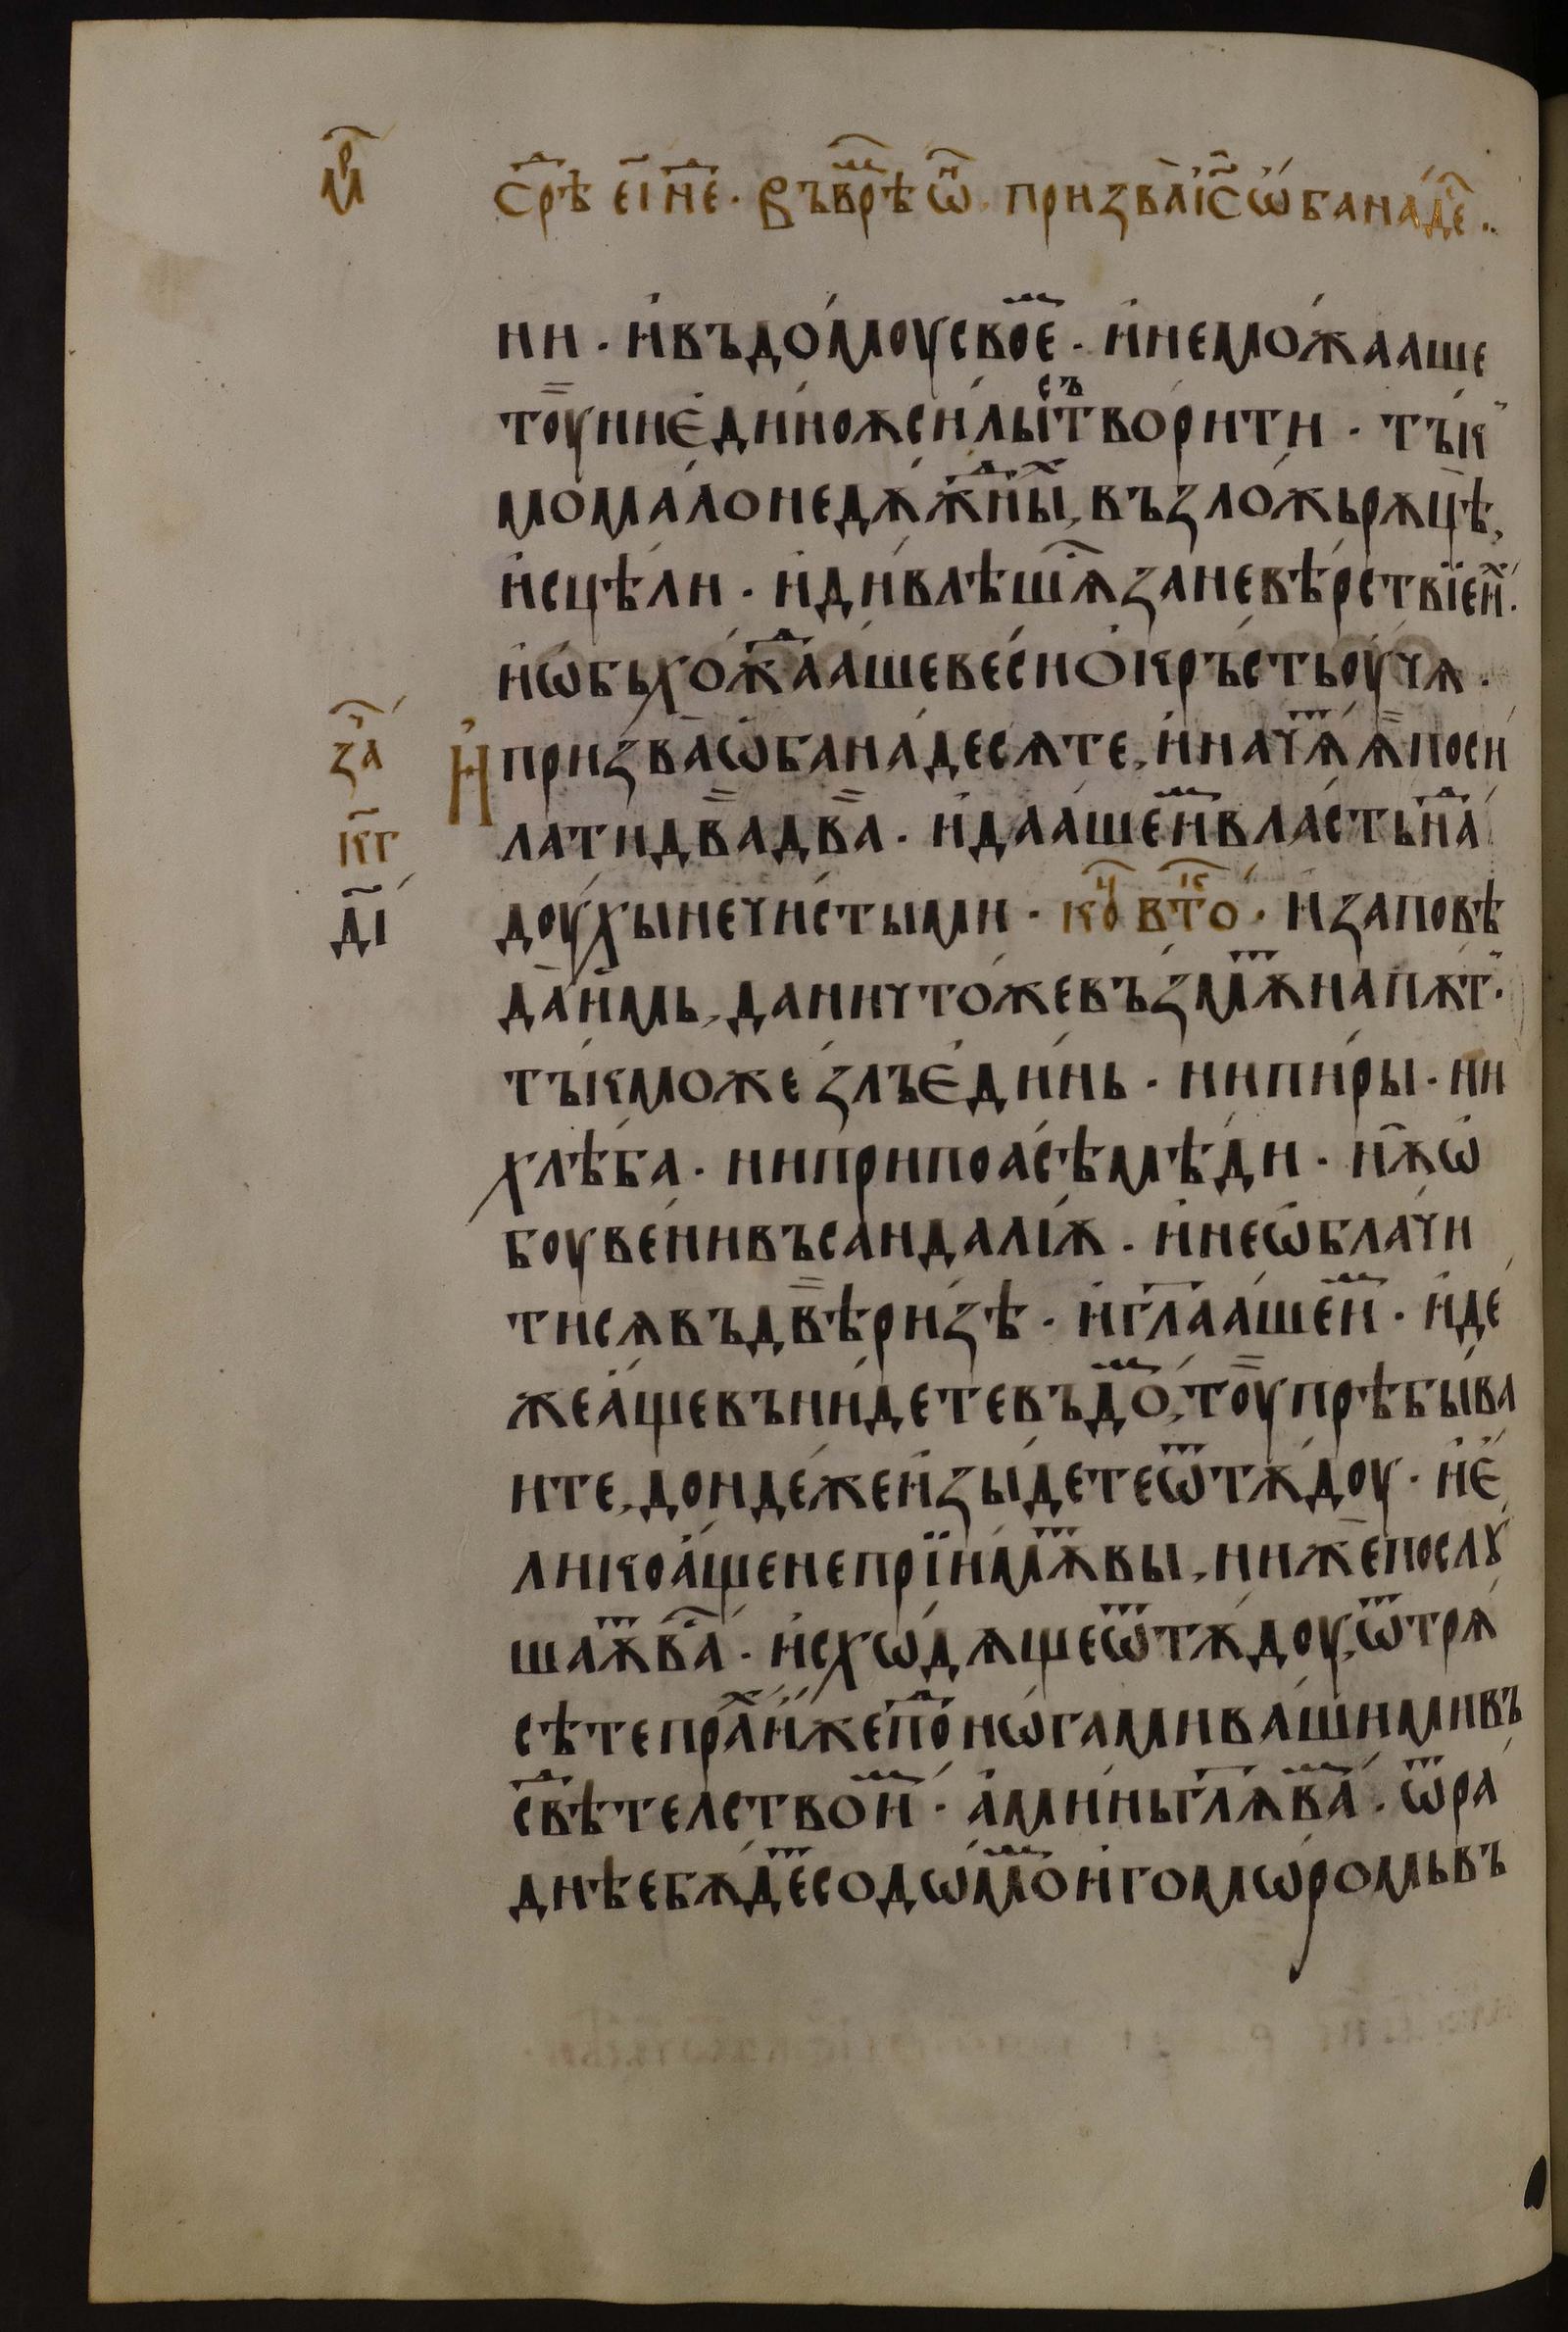 мр҇ срⷣѣ є҃і нⷣе. Въ врⷨѣ ѡⷩ҇ призва і҃с ѡба на дⷭ҇е..
ни. и҆ въ до́моу своеⷨ. и҆ не мо́жааше
тоу ни є҆ди́ноѫ си́лы сътвори́ти. тъ́к
мо ма́ло недѫ́жⷣныⷯ, възло́жь рѫцѣ,
и҆сцѣ́ли. и҆ ди́влѣшеⷭ҇ѧ за невѣ́рствїе иⷯ.
и҆ ѡ҆бьхо́жⷣааше ве́си ѻ҆кръ́сть оу҆чѧ.
за҇ И҆ призва̀ ѡ҆бана́десѧте, и҆ начѧⷮ ѧ҆ поси
к҃г лати два̀ два̀. и҆ даа́ше иⷨ вла́сть наⷣ
д҃і доу́хы нечи́стыми. коⷰ҇ втоⷦ҇. и҆ заповѣ
да̀ и҆мь, да ничто́же въ́змѫⷮ на пѫт.
тъ́кмо же зль є҆ди́нь. ни пи́ры. ни
хлѣ́ба. ни при поасѣ мѣ́ди. нѫ̑ ѡ
боуве́ни въ санда́лїѫ. и҆ не ѡ҆бла́чи
тисѧ въ двѣ ри́зѣ. и҆ гл҃аа́ше иⷨ. и҆де́
же а҆́ще въни́дете въ доⷨ, тоу прѣбы́ва
ите, до́нде́же и҆зы́дете ѿтѫ́доу. и҆ є҆
лико а҆́ще не прїи́мѫⷮ вы, ни же послꙋ́
шаѫⷮ ваⷭ҇. и҆схѡ́дѧще ѿтѫ́доу, ѿтрѧ
сѣте праⷯ и҆́же поⷣ нѡга́ми ва́шими въ
свⷣѣтелство иⷨ. а҆ми́нь гл҃ѧ ваⷨ. ѿра
днѣе бѫ́деⷮ содѡ́моⷨ и҆ гомѡ́ромь въ